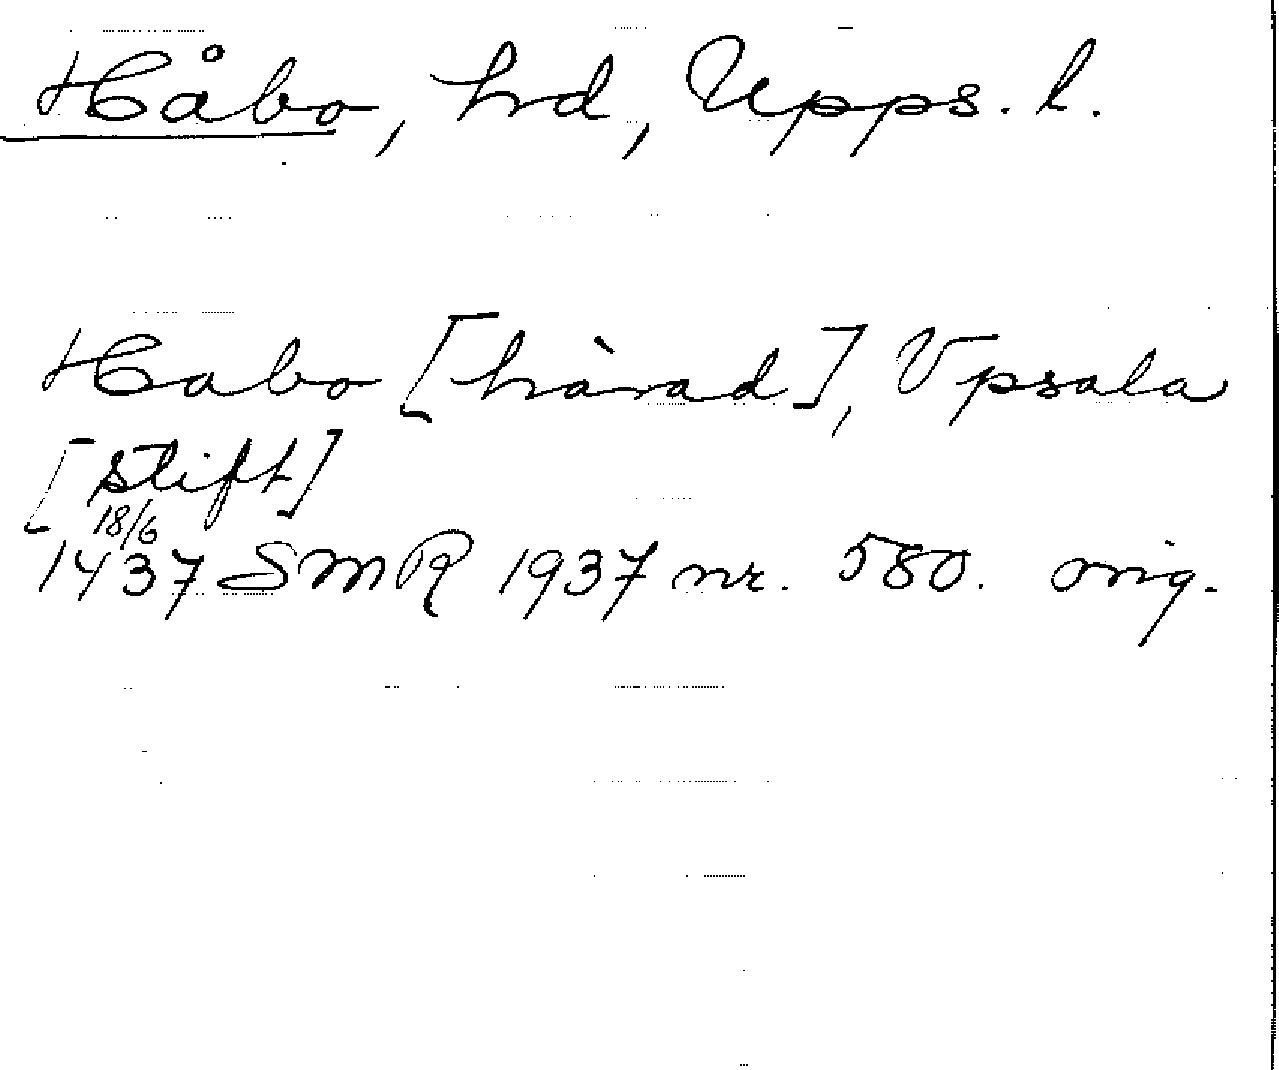 Håbo, hd, Upps. l.
Habo [hàrad], Vpsala
[stift]
18/6
1437 SMR 1937 nr. 580. orig.